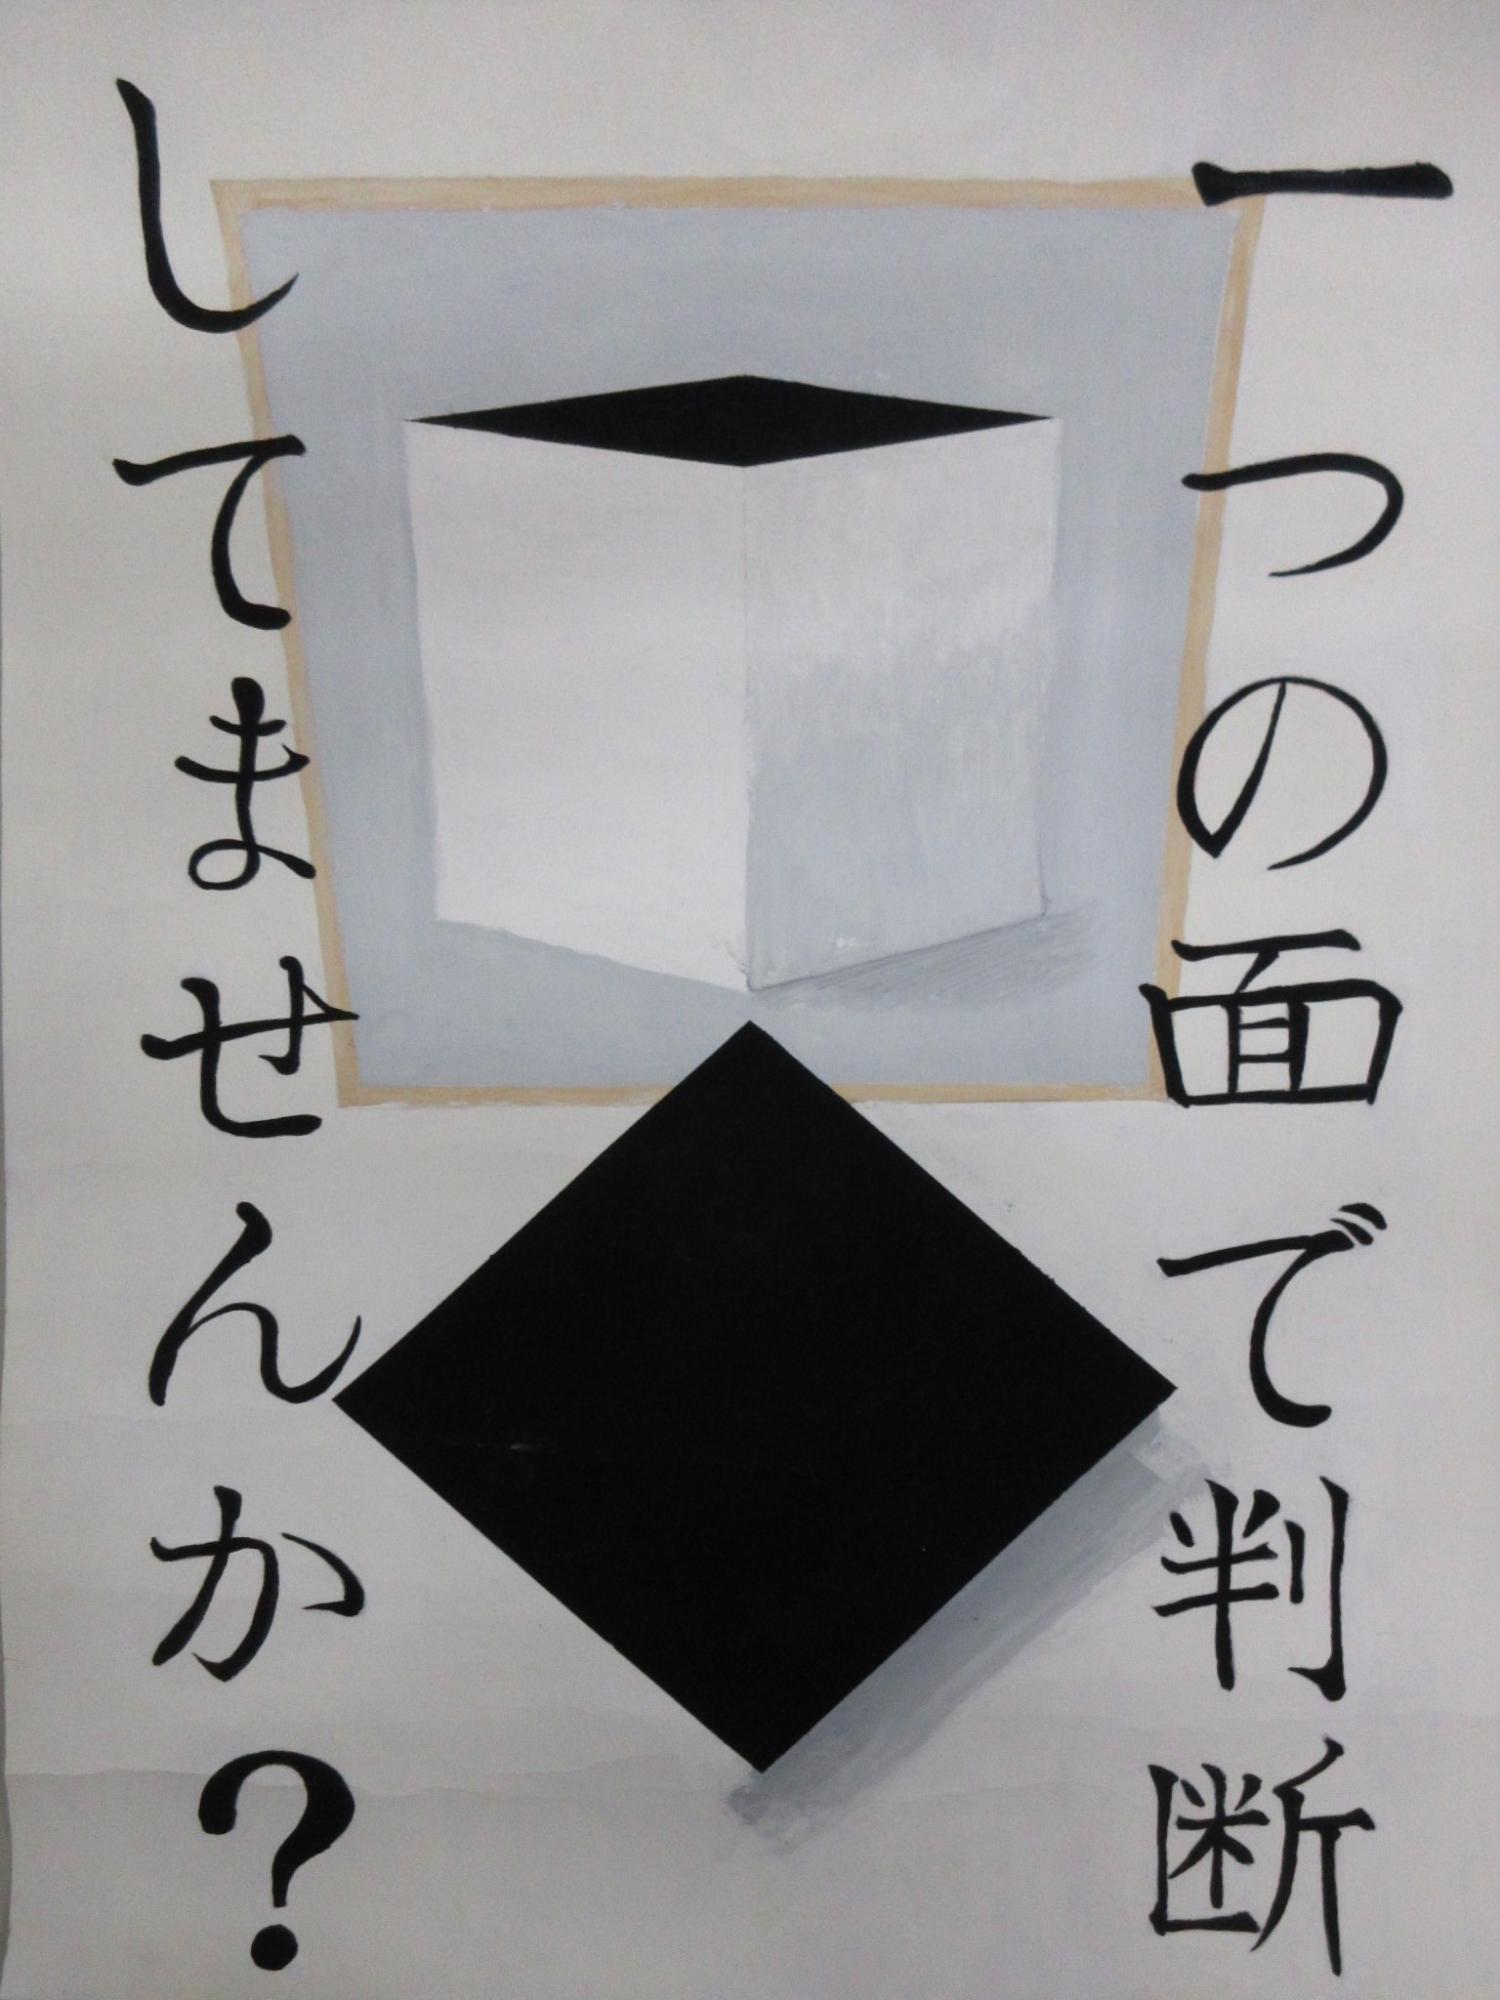 一つの面で判断
してませんか?